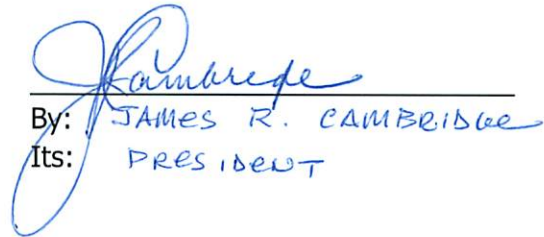 JCambridge
By: JAMES R. CAMBRIDGE
Its: PRESIDENT